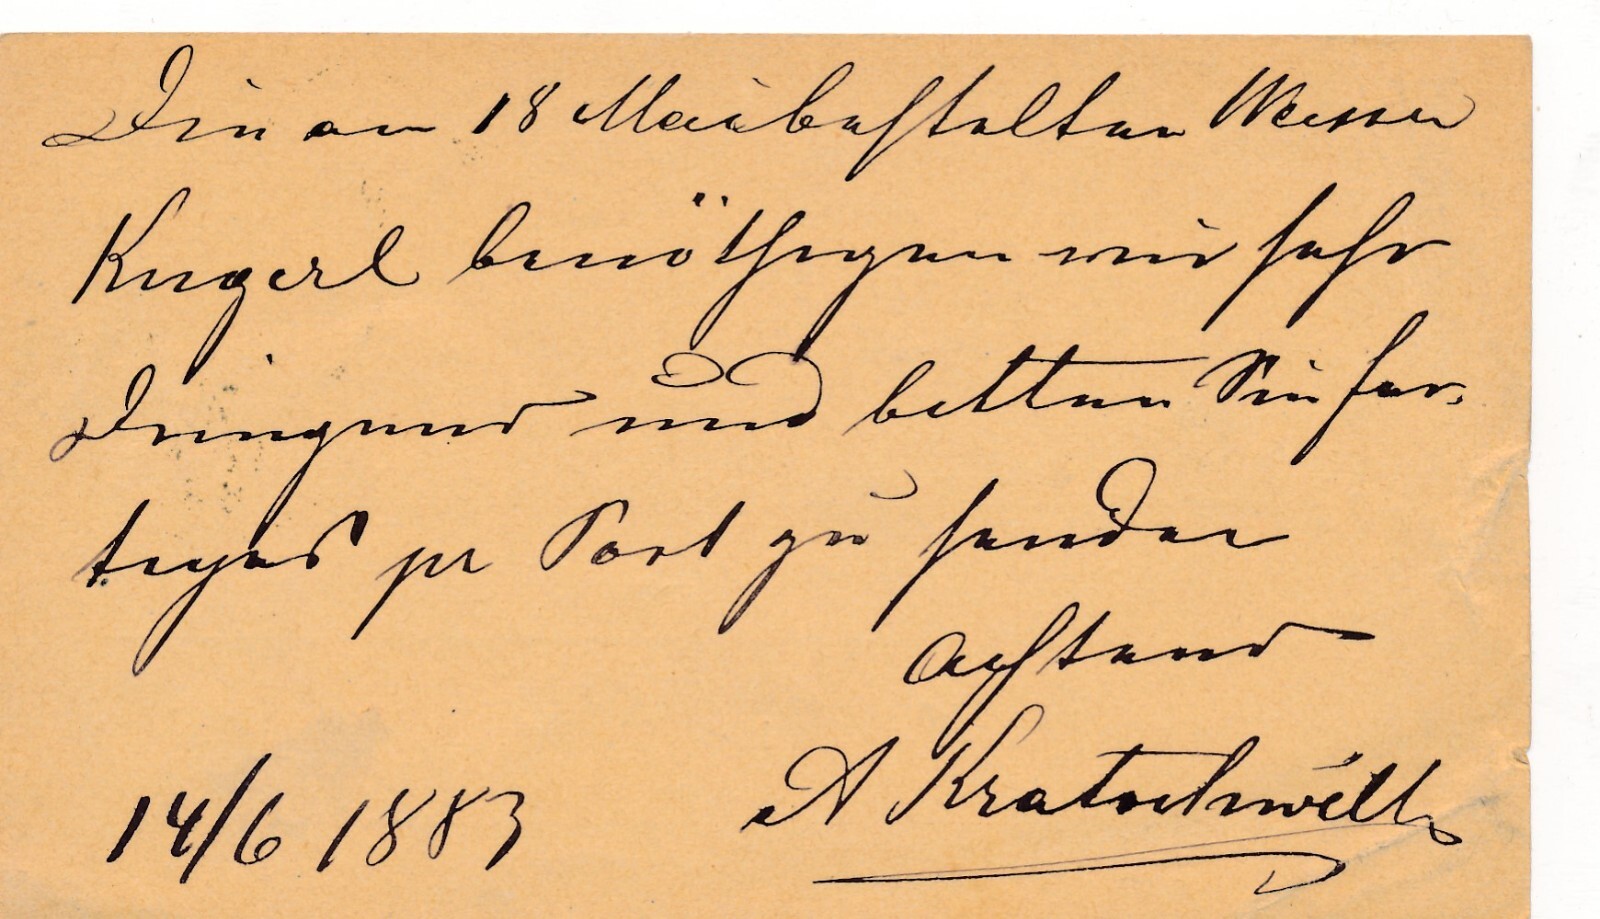 Die am 18 Mai bestellten Messer
Kugerl benöthigen wir sehr
Dringend und bitten Sie fer-
tiges pr Post zu senden
Achtend
A Kratochwill
14/6 1883